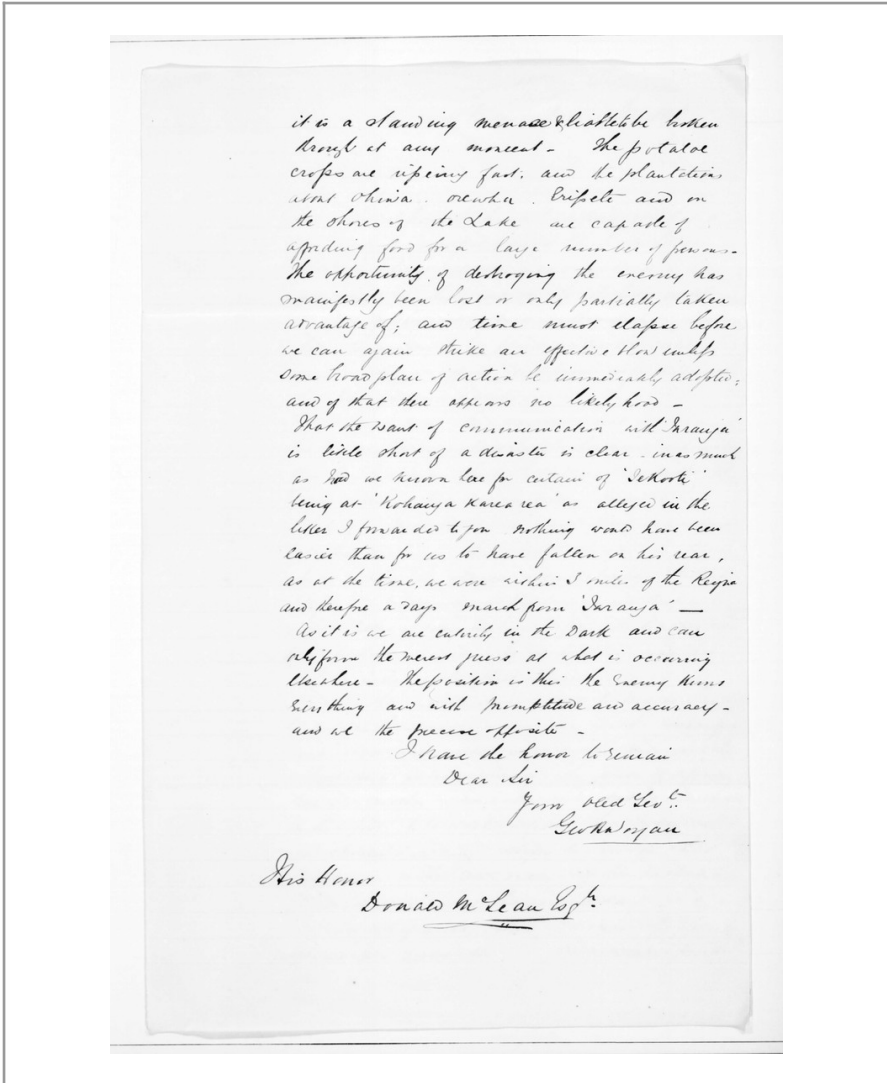 it is a standing menace & liable to be broken
through at any moment - The potatoe
crops are ripening fast, and the plantations
about Ohiwa. Orewha. Erepete and on
the shores of the Lake are capable of
affording food for a large number of persons -
The opportunity of destroying the enemy has
manifestly been lost or only partially taken
advantage of; and time must elapse before
we can again strike an effective blow unless
some broad plan of action be immediately adopted;
and of that there appears no likelyhood -
That the want of communication with 'Turanga'
is little short of a disaster is clear - inasmuch
as had we known here for certain of 'Te Kooti'
being at 'Kohanga Karearea' as alleged in the
letter I forwarded to you nothing would have been
easier than for us to have fallen on his rear,
as at the time, we were within 5 miles of the Reinga
and therefore a days march from 'Turanga' —
As it is we are entirely in the Dark and can
only form the merest guess at what is occurring
elsewhere - The position is this the Enemy knows
Everything and with promptitude and accuracy -
and we the precise opposite -
I have the honor to remain
Dear Sir
Your Obed Servt.
Geo Worgan
His Honor
Donald McLean Esqre.